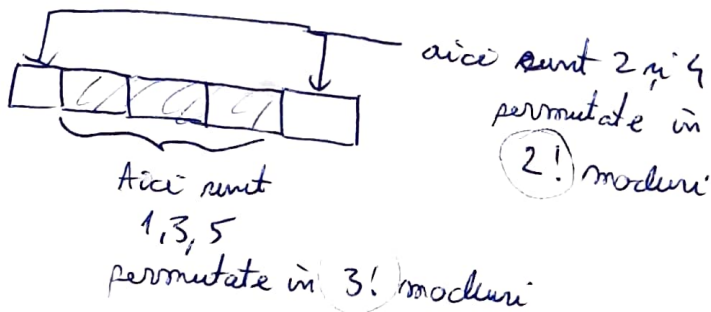 aici sunt 2 și 4
permutate în
2! moduri
Aici sunt
1,3,5
permutate în 3! moduri